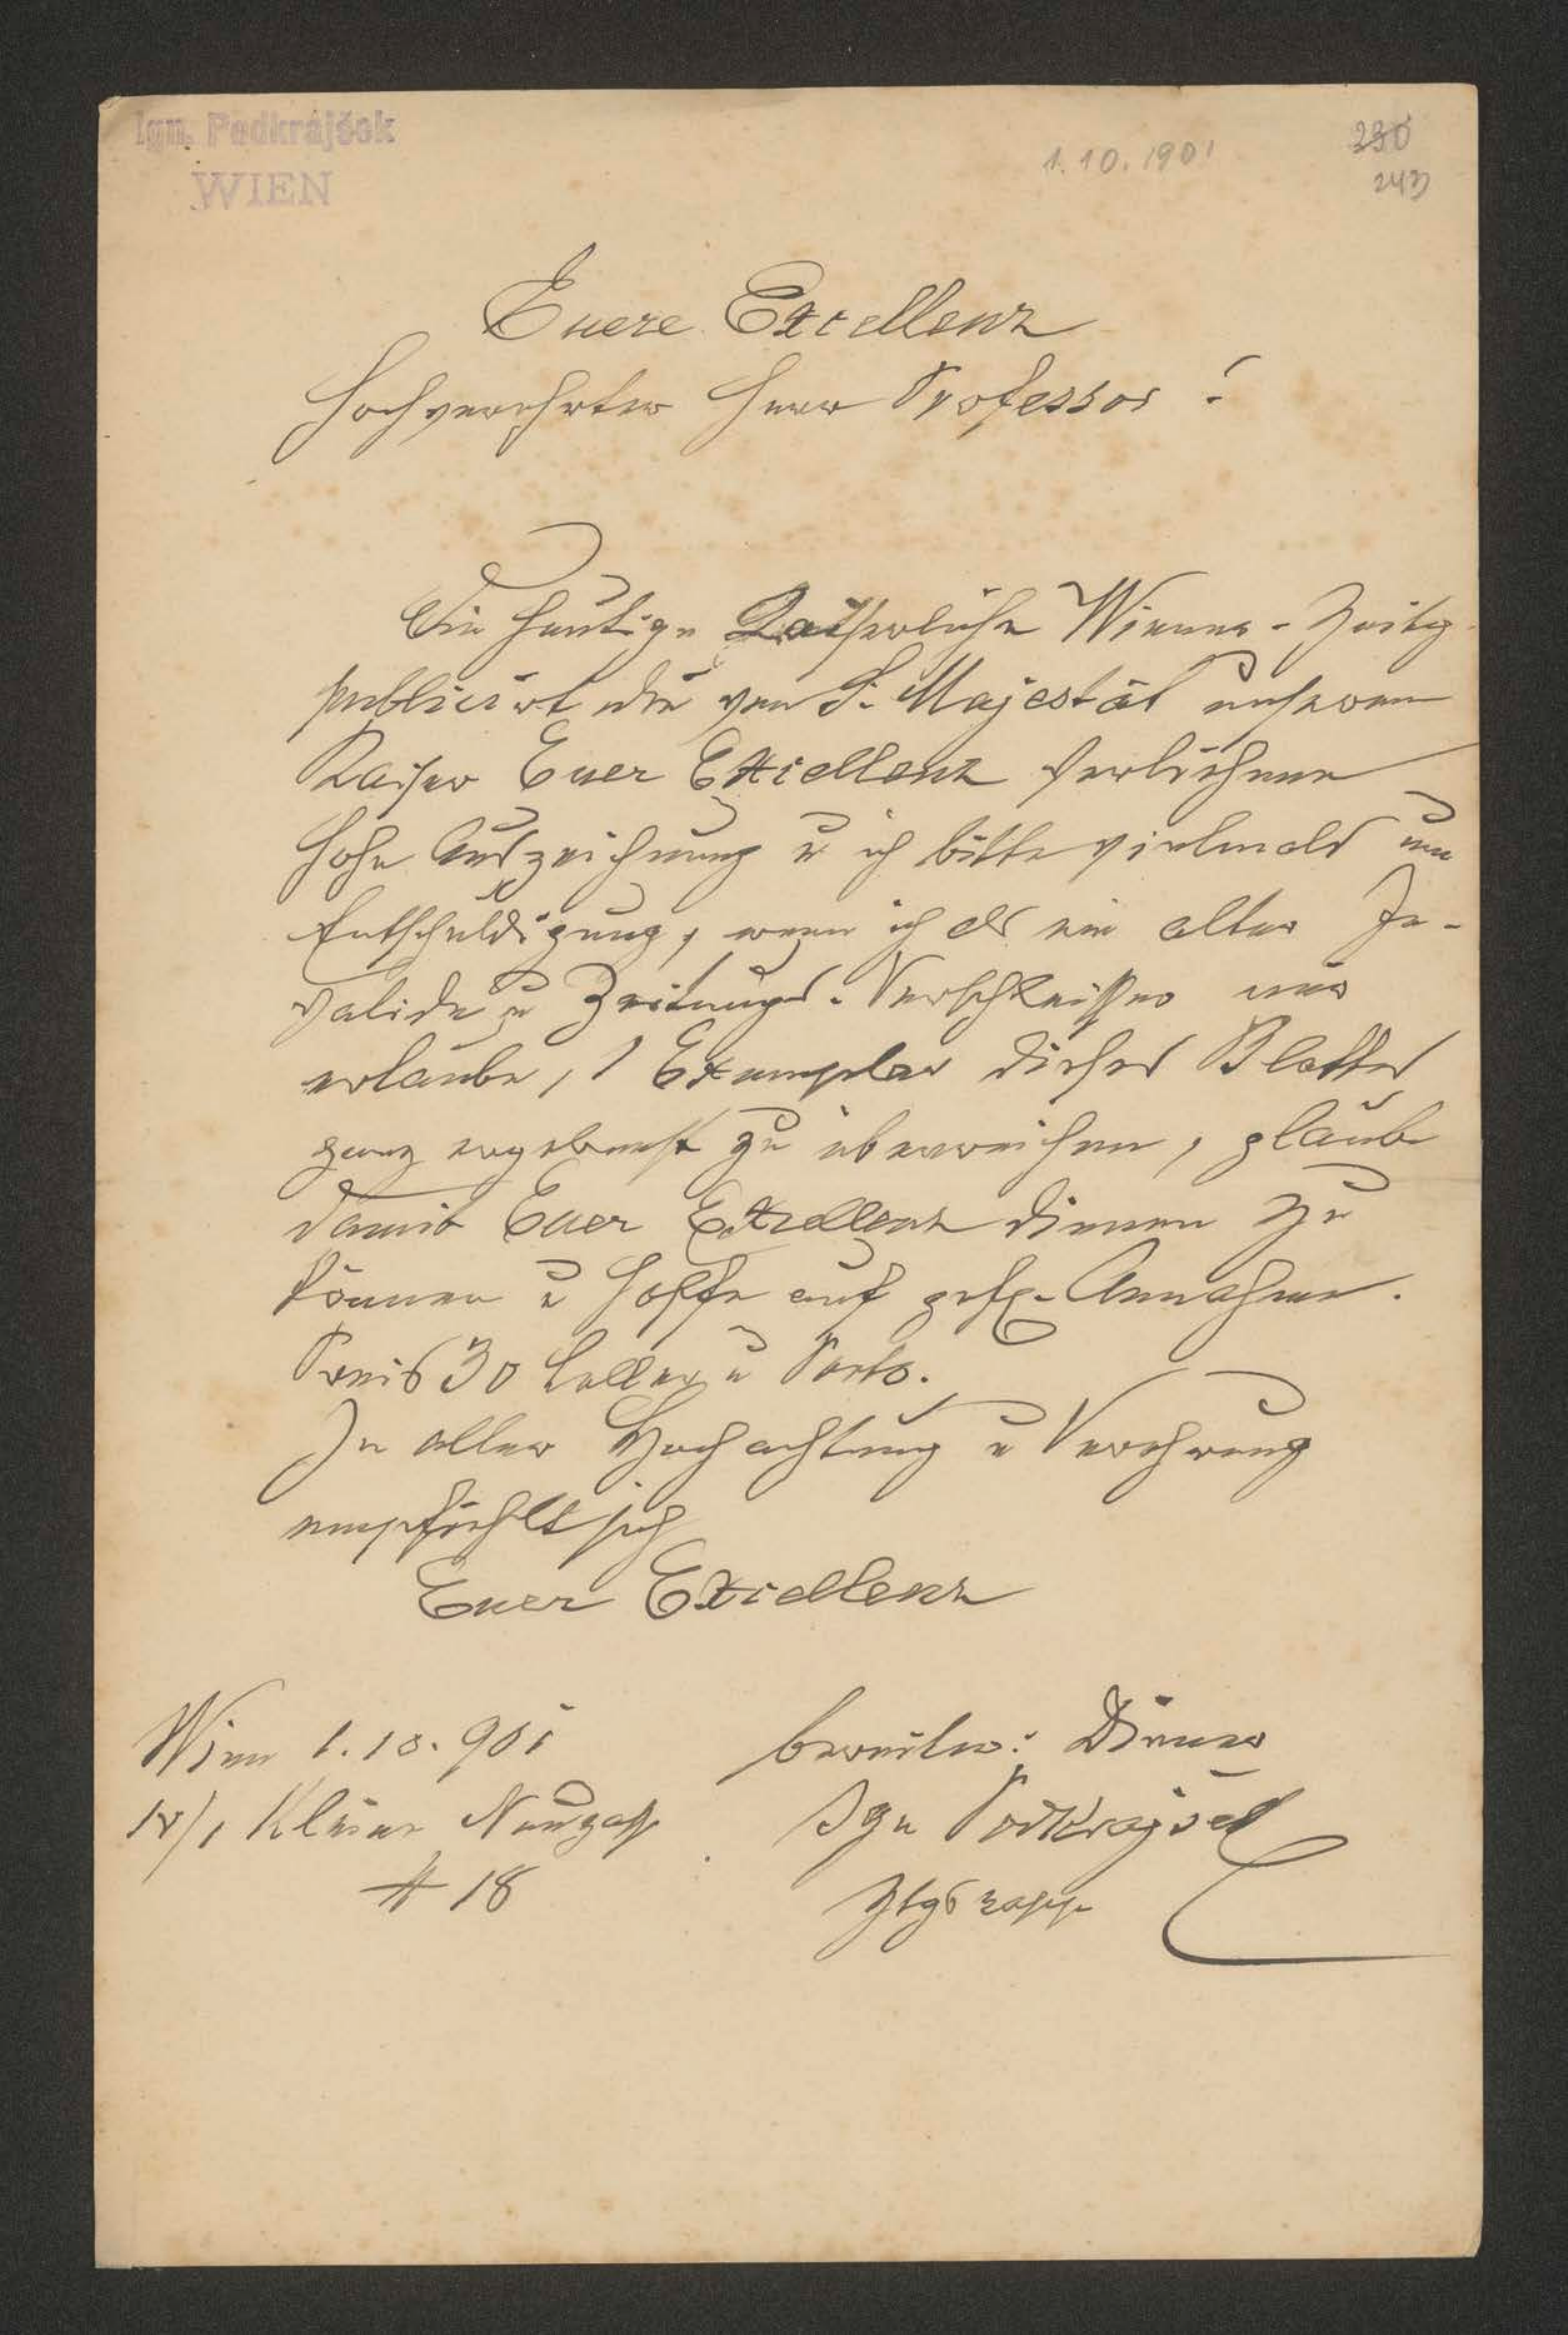 Ign. Podkrajšek
WIEN
1.10.1901
230
243
Euere Excellenz
Hochverehrter Herr Professor!
Die heutige Kaiserliche Wiener-Zeitg
publicirt die von S. Majestät unserem
Kaiser Euer Excellenz verliehene
hohe Auszeichnung u ich bitte vielmals um
Entschuldigung, wenn ich als ein alter In-
valide u Zeitungs-Verschleißer mir
erlaube, 1 Exemplar dieses Blattes
ganz ergebenst zu überreichen, glaube
damit Euer Excellenz dienen zu
können u hoffe auf gefl. Annahme.
Preis 30 Heller u Porto.
In aller Hochachtung u Verehrung
empfiehlt sich
Euer Excellenz
Wien 1.10.901
IV/1 Kleine Neugasse
# 18
bereitw: Diener
Ign Podkrajšek